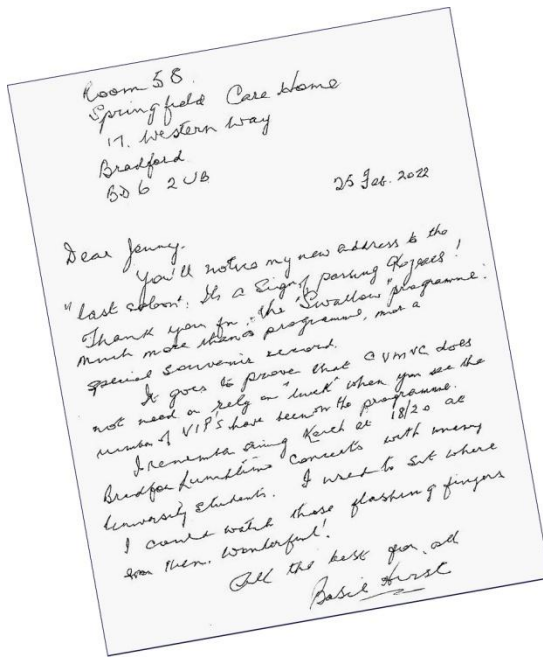 Room 58.
Springfield Care Home
17, Western Way
Bradford
BD6 2UB
25 Feb. 2022
Dear Jenny.
You'll notice my new address to the
"last saloon". Its a sign of passing
Thank you for the "Swallow" programme:
much more than a programme, a
special souvenir record.
It goes to prove that CVMVC does
not need or rely on "luck" when you see the
number of VIP's have been on the programme.
I remember seeing at 18/20 at
Lunchtime Concerts with many
University students. I used to sit where
I could watch those flashing fingers
even then. Wonderful!
All the best for all
Basil Hurst